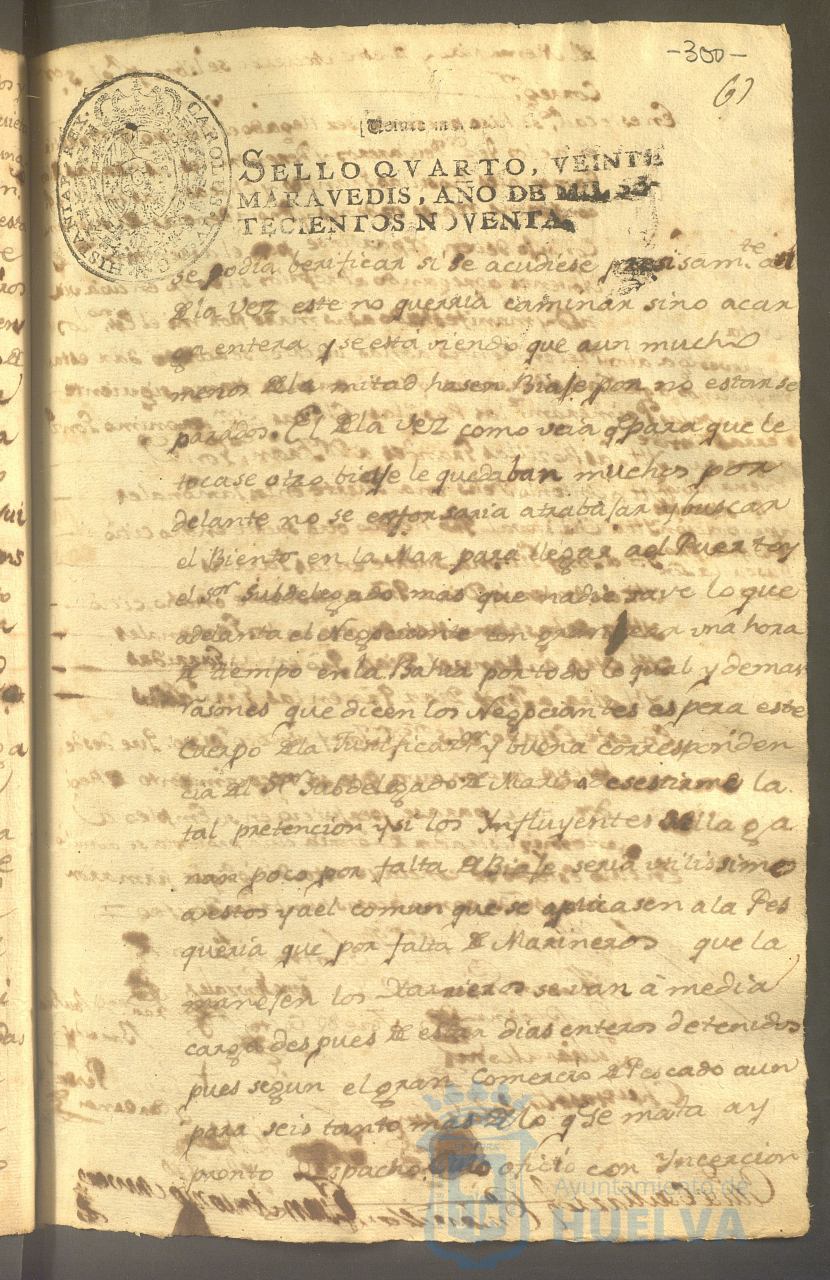 -300-
61
CAROLUS IV D G HISPANIAR REX
SELLO QVARTO, VEINTE
MARAVEDIS, AÑO DE MIL SE-
TECIENTOS NOVENTA.
se podia berificar si se acudiese presisam.te a el
de la vez este no querria caminar sino a car
ga entera y se está viendo que aun mucho
menos de la mitad hasen Biaje por no estarse
parados. El de la vez como veia q.e para que le
tocase otro bieje le quedaban muchos por
delante no se esforsaria a trabajar y buscar
el Biento en la Mar para llegar a el Puerto y
el s.or Subdelegado mas que nadie save lo que
adelanta el Negociante con una hora
de tiempo en la Bahia por todo lo qual y demas
rasones que dicen los Negociantes espera este
Cuerpo de la Justificac.on y buena corresponden
cia del S.or Subdelegado de Marina desestime la
tal pretencion y si los Ynfluyentes de ella ga
nan poco por falta de Biaje seria utilissimo
a estos y a el comun que se aplicasen a la Pes
queria que por falta de Marineros que la
manejen los Harrieros se van a media
carga despues de estar dias enteros detenidos
pues segun el gran Comercio de Pescado aun
para seis tanto mas de lo q.e se mata ay
pronto despacho. Cuio oficio con Yncercion
Ayuntamiento de
HUELVA